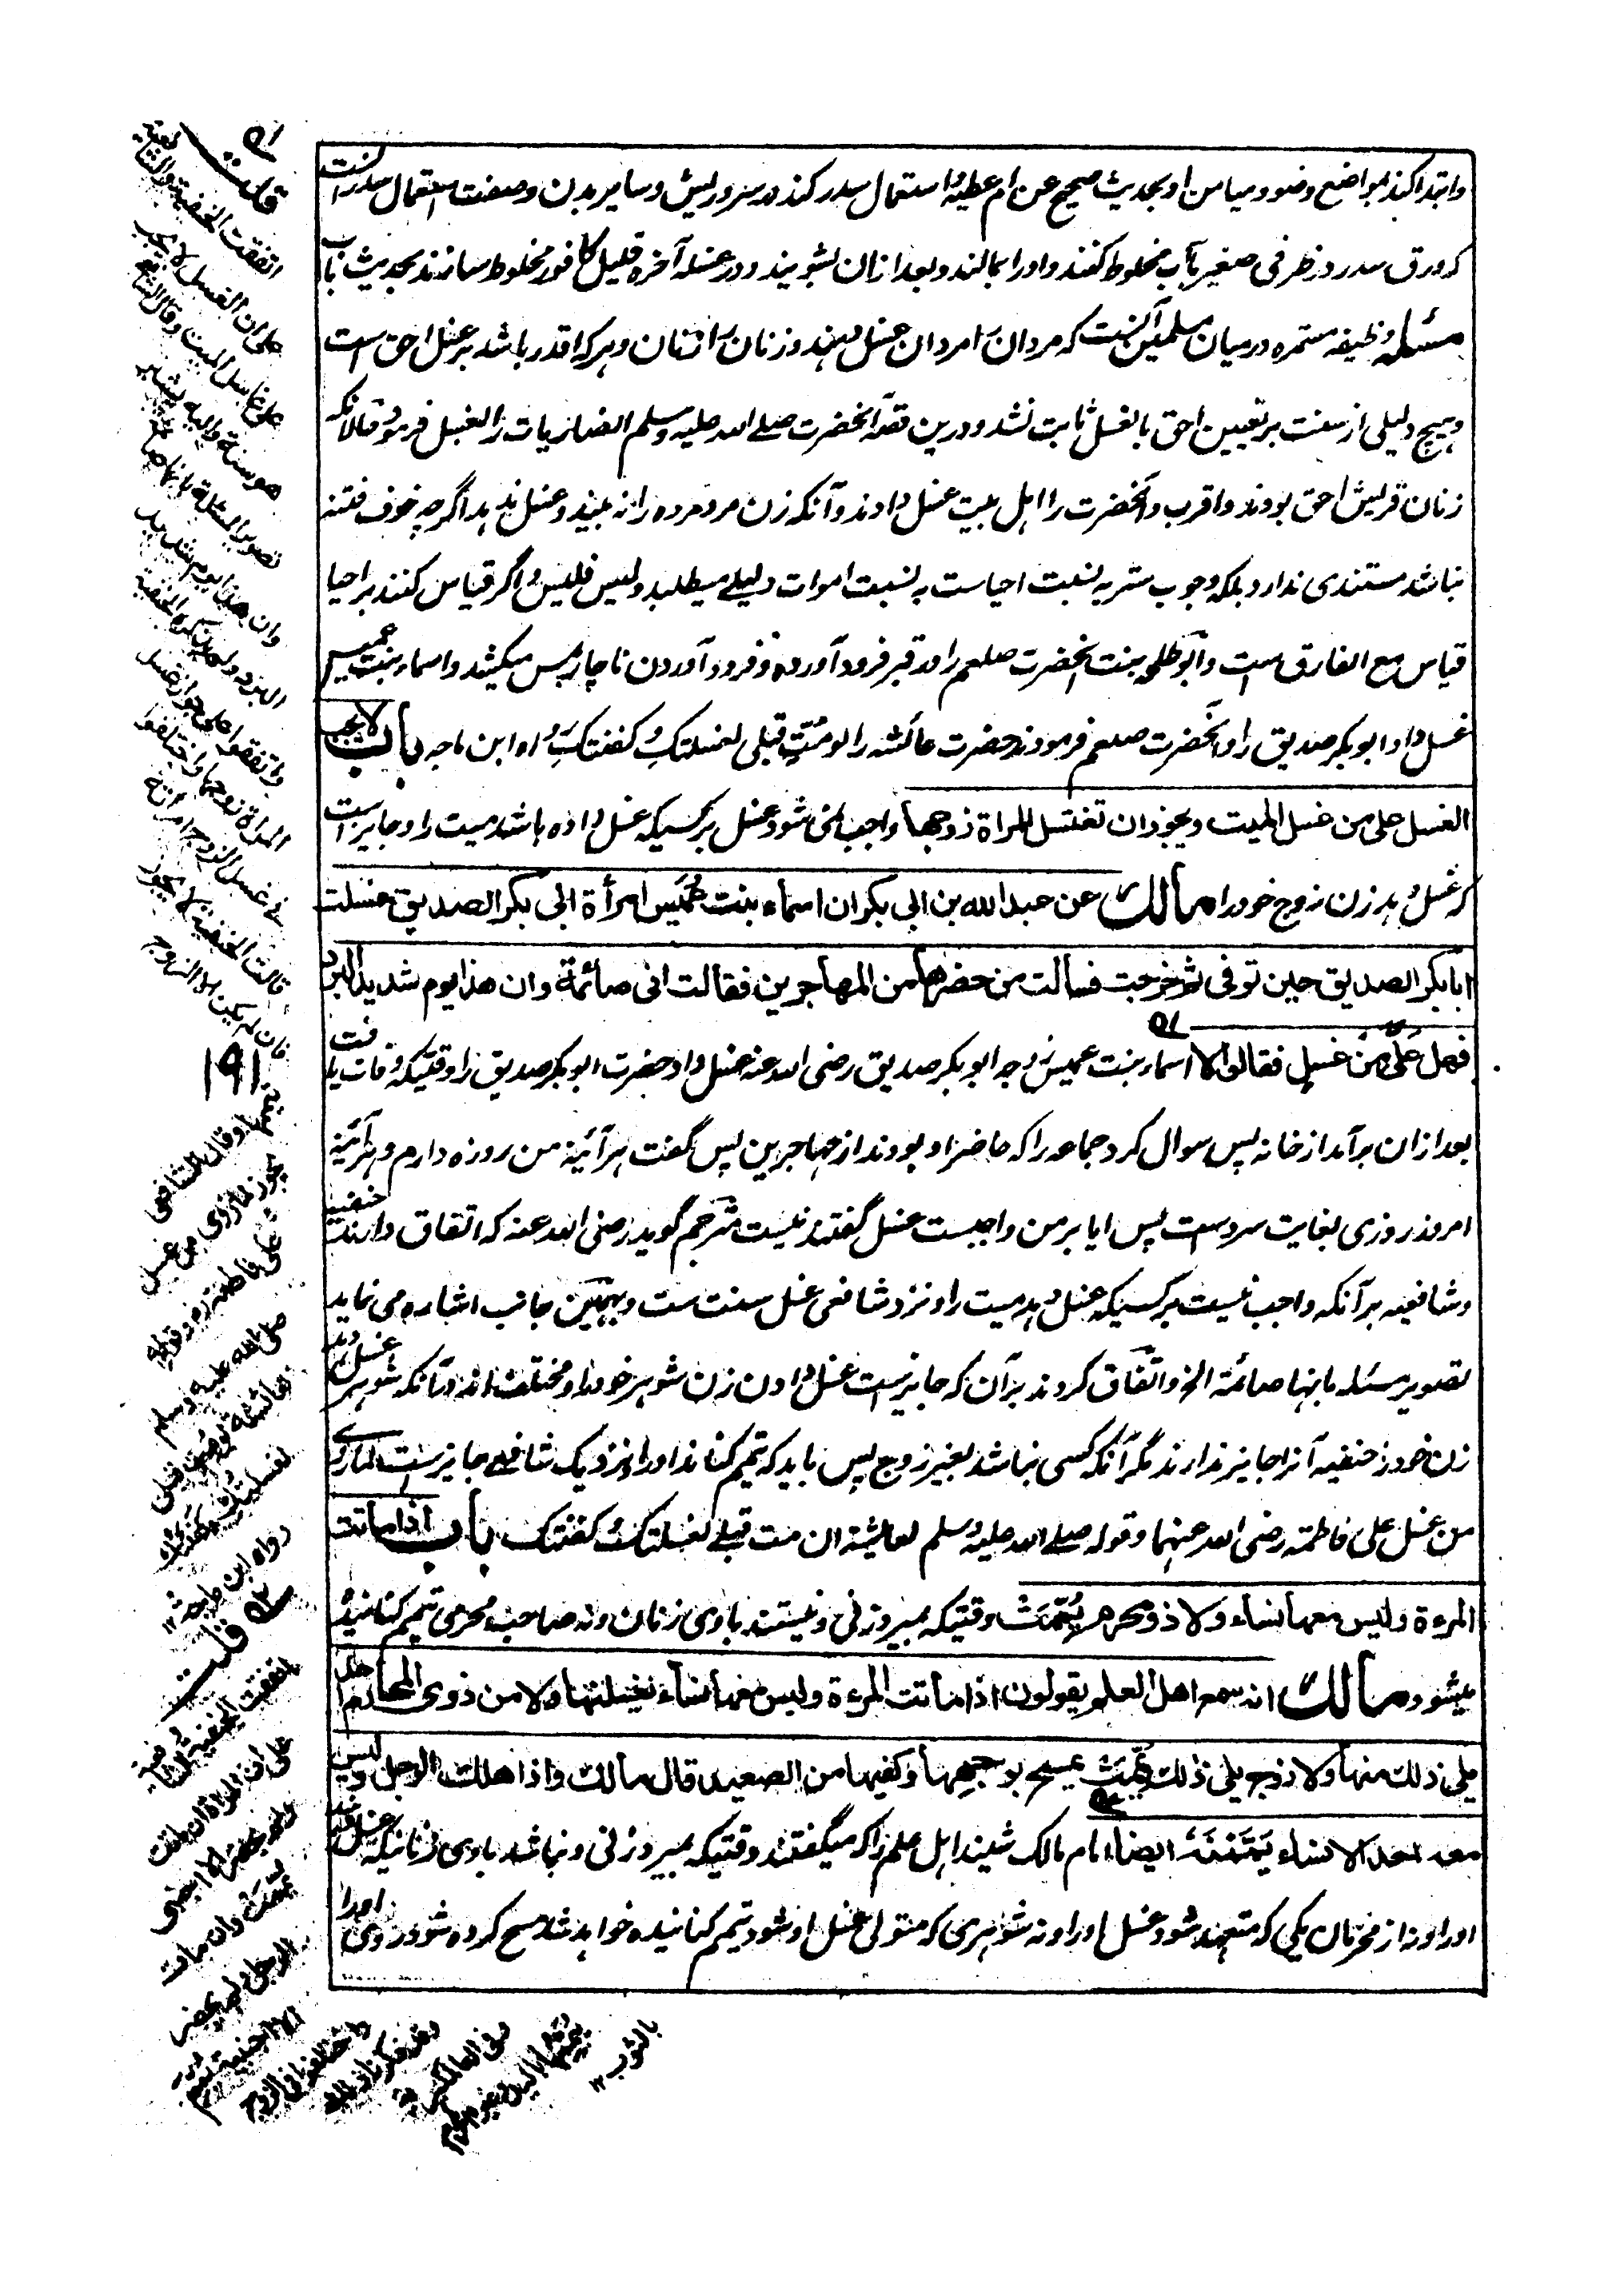 وابتدا کنند بمواضع وضو و میامن او بحدیث صحیح عن ام عطیه و استعمال سدر کنند در سر و ریش و سایر بدن و صفت استعمال سدر آنست
که ورق سدر در ظرفی صغیر بآب مخلوط کنند و او را بمالند و بعد ازان بشویند و در غسله آخره قلیل کافور مخلوط سازند بحدیث باب
مسئله وظیفه مستمره درمیان مسلمین آنست که مردان را مردان غسل دهند و زنان را زنان و هرکه اقدر باشد بر غسل احق است
و هیچ دلیلی از سنت بر تعیین احق بالغسل ثابت نشد و درین قصه آنحضرت صلے الله علیه وسلم انصاریات را بغسل فرمود حالانکه
زنان قریش احق بودند و اقرب و آنحضرت را اهل بیت غسل دادند و آنکه زن مرد مرده را نه بیند و غسل ندهد اگرچه خوف فتنه
نباشد مستندی ندارد بلکه وجوب ستر به نسبت احیاست به نسبت اموات دلیلے میطلبد ولیس فلیس و اگر قیاس کنند بر احیا
قیاس مع الفارق است و ابو طلحه بنت آنحضرت صلعم را در قبر فرود آورده و فرود آوردن ناچار بمس میکشد و اسماء بنت عمیس
غسل داد ابوبکر صدیق را و آنحضرت صلعم فرمودند حضرت عائشه را لو مُتِّ قبلی لغسلتكِ و کفنتكِ رواه ابن ماجه باب لا یجب
الغسل علی من غسل المیت ویجوز ان تغتسل المراة زوجها واجب نمی شود غسل بر کسیکه غسل داده باشد میت را و جایز است
که غسل دهد زن زوج خود را مالك عن عبد الله بن ابی بکر ان اسماء بنت عُمَیس امرأة ابی بکر الصدیق غسلت
ابا بکر الصدیق حین توفی ثم خرجت فسألت من حضرها من المهاجرین فقالت انی صائمة وان هذا یوم شدید البرد
فهل عَلَیَّ مِنْ غسلٍ فقالوا لا اسماء بنت عمیس زوجه ابوبکر صدیق رضی الله عنه غسل داد حضرت ابوبکر صدیق را وقتیکه وفات یافت
بعد ازان برآمد از خانه پس سوال کرد جماعه را که حاضر او بودند از مهاجرین پس گفت هر آئینه من روزه دارم و هر آئینه
امروز روزی بغایت سردست پس ایا بر من واجبست غسل گفتند نیست مترجم گوید رضی الله عنه که اتفاق دارند حنفیه
و شافعیه بر آنکه واجب نیست بر کسیکه غسل دهد میت را و نزد شافعی غسل سنت ست و بهمین جانب اشاره می نماید
تصویر مسئله بانها صائمة الخ و اتّفاق کردند بر آن که جایزست غسل دادن زن شوهر خود را و مختلف اند در آنکه شوهر غسل دهد
زن خود را حنفیه آنرا جایز ندارند مگر آنکه کسی نباشد بغیر زوج پس باید که تیمم کناند او را و نزدیک شافعی جایزست لما روی
من غسل علی فاطمة رضی الله عنهما وقوله صلے الله علیه وسلم لعائشة ان مت قبلے لغسلتكِ و کفنتك باب اذا ماتت
المرءة ولیس معها نساء ولا ذو محرم یُتِمّمَتْ وقتیکه بمیرد زنی و نیستند باوی زنان و نه صاحب محرمی تیمم کنانیده
میشود مالك انه سمع اهل العلم یقولون اذا ماتت المرءة ولیس معها نساء یغسلنها ولا من ذوی المحارم احد
یلی ذلك منها ولا زوج یلی ذلك یُمِّمَتْ یمسح بوجهها وکفیها من الصعید قال مالك واذا هلك الرجل ولیس
معه احد الا نساء یَمَّمْنَهُ ایضا امام مالک شنید اهل علم را که میگفتند وقتیکه بمیرد زنی و نباشد باوی زنانیکه غسل دهند
او را و نه از محرمان یکی که متعهد شود غسل او را و نه شوهری که متولی غسل او شود تیمم کنانیده خواهد شد مسح کرده شود روی او را
ه۱
قلت
اتفقت الحنفیة والشافعیة
علی ان الغسل لا یجب
علی غاسل المیت وقال الشافعی
هو سنة والیه یشیر
تصویر المسئلة بانها صائمة
وان هذا یوم شدید
البرد
واتفقوا علی جواز غسل
المراة زوجها واختلفوا
فی غسل الزوج امرأته
قالت الحنفیة لا یجوز
فان لم یکن الا الزوج
۱۹۱
یممها وقال الشافعی
یجوز لما روی من غسل
علی فاطمة رض وقوله
صلی الله علیه وسلم
لعائشة لو مُتِّ قبلی
لغسلتكِ وکفنتكِ
رواه ابن ماجه ۱۲
ه۲ قلت
اتفقت الحنفیة والشافعیة
علی ان المراة ان ماتت
ولم یحضرها الا اجنبی
یُمِّمَتْ وان مات
الرجل لم یحضر
الا اجنبیة یُمِّم
واختلفوا فی الزوج
وقد ذکرناه
وفی العالمگیریة
بالثوب ۱۲